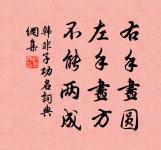 右手畫圆
左手畫方
不能两成
韩非子功名詞典
網集